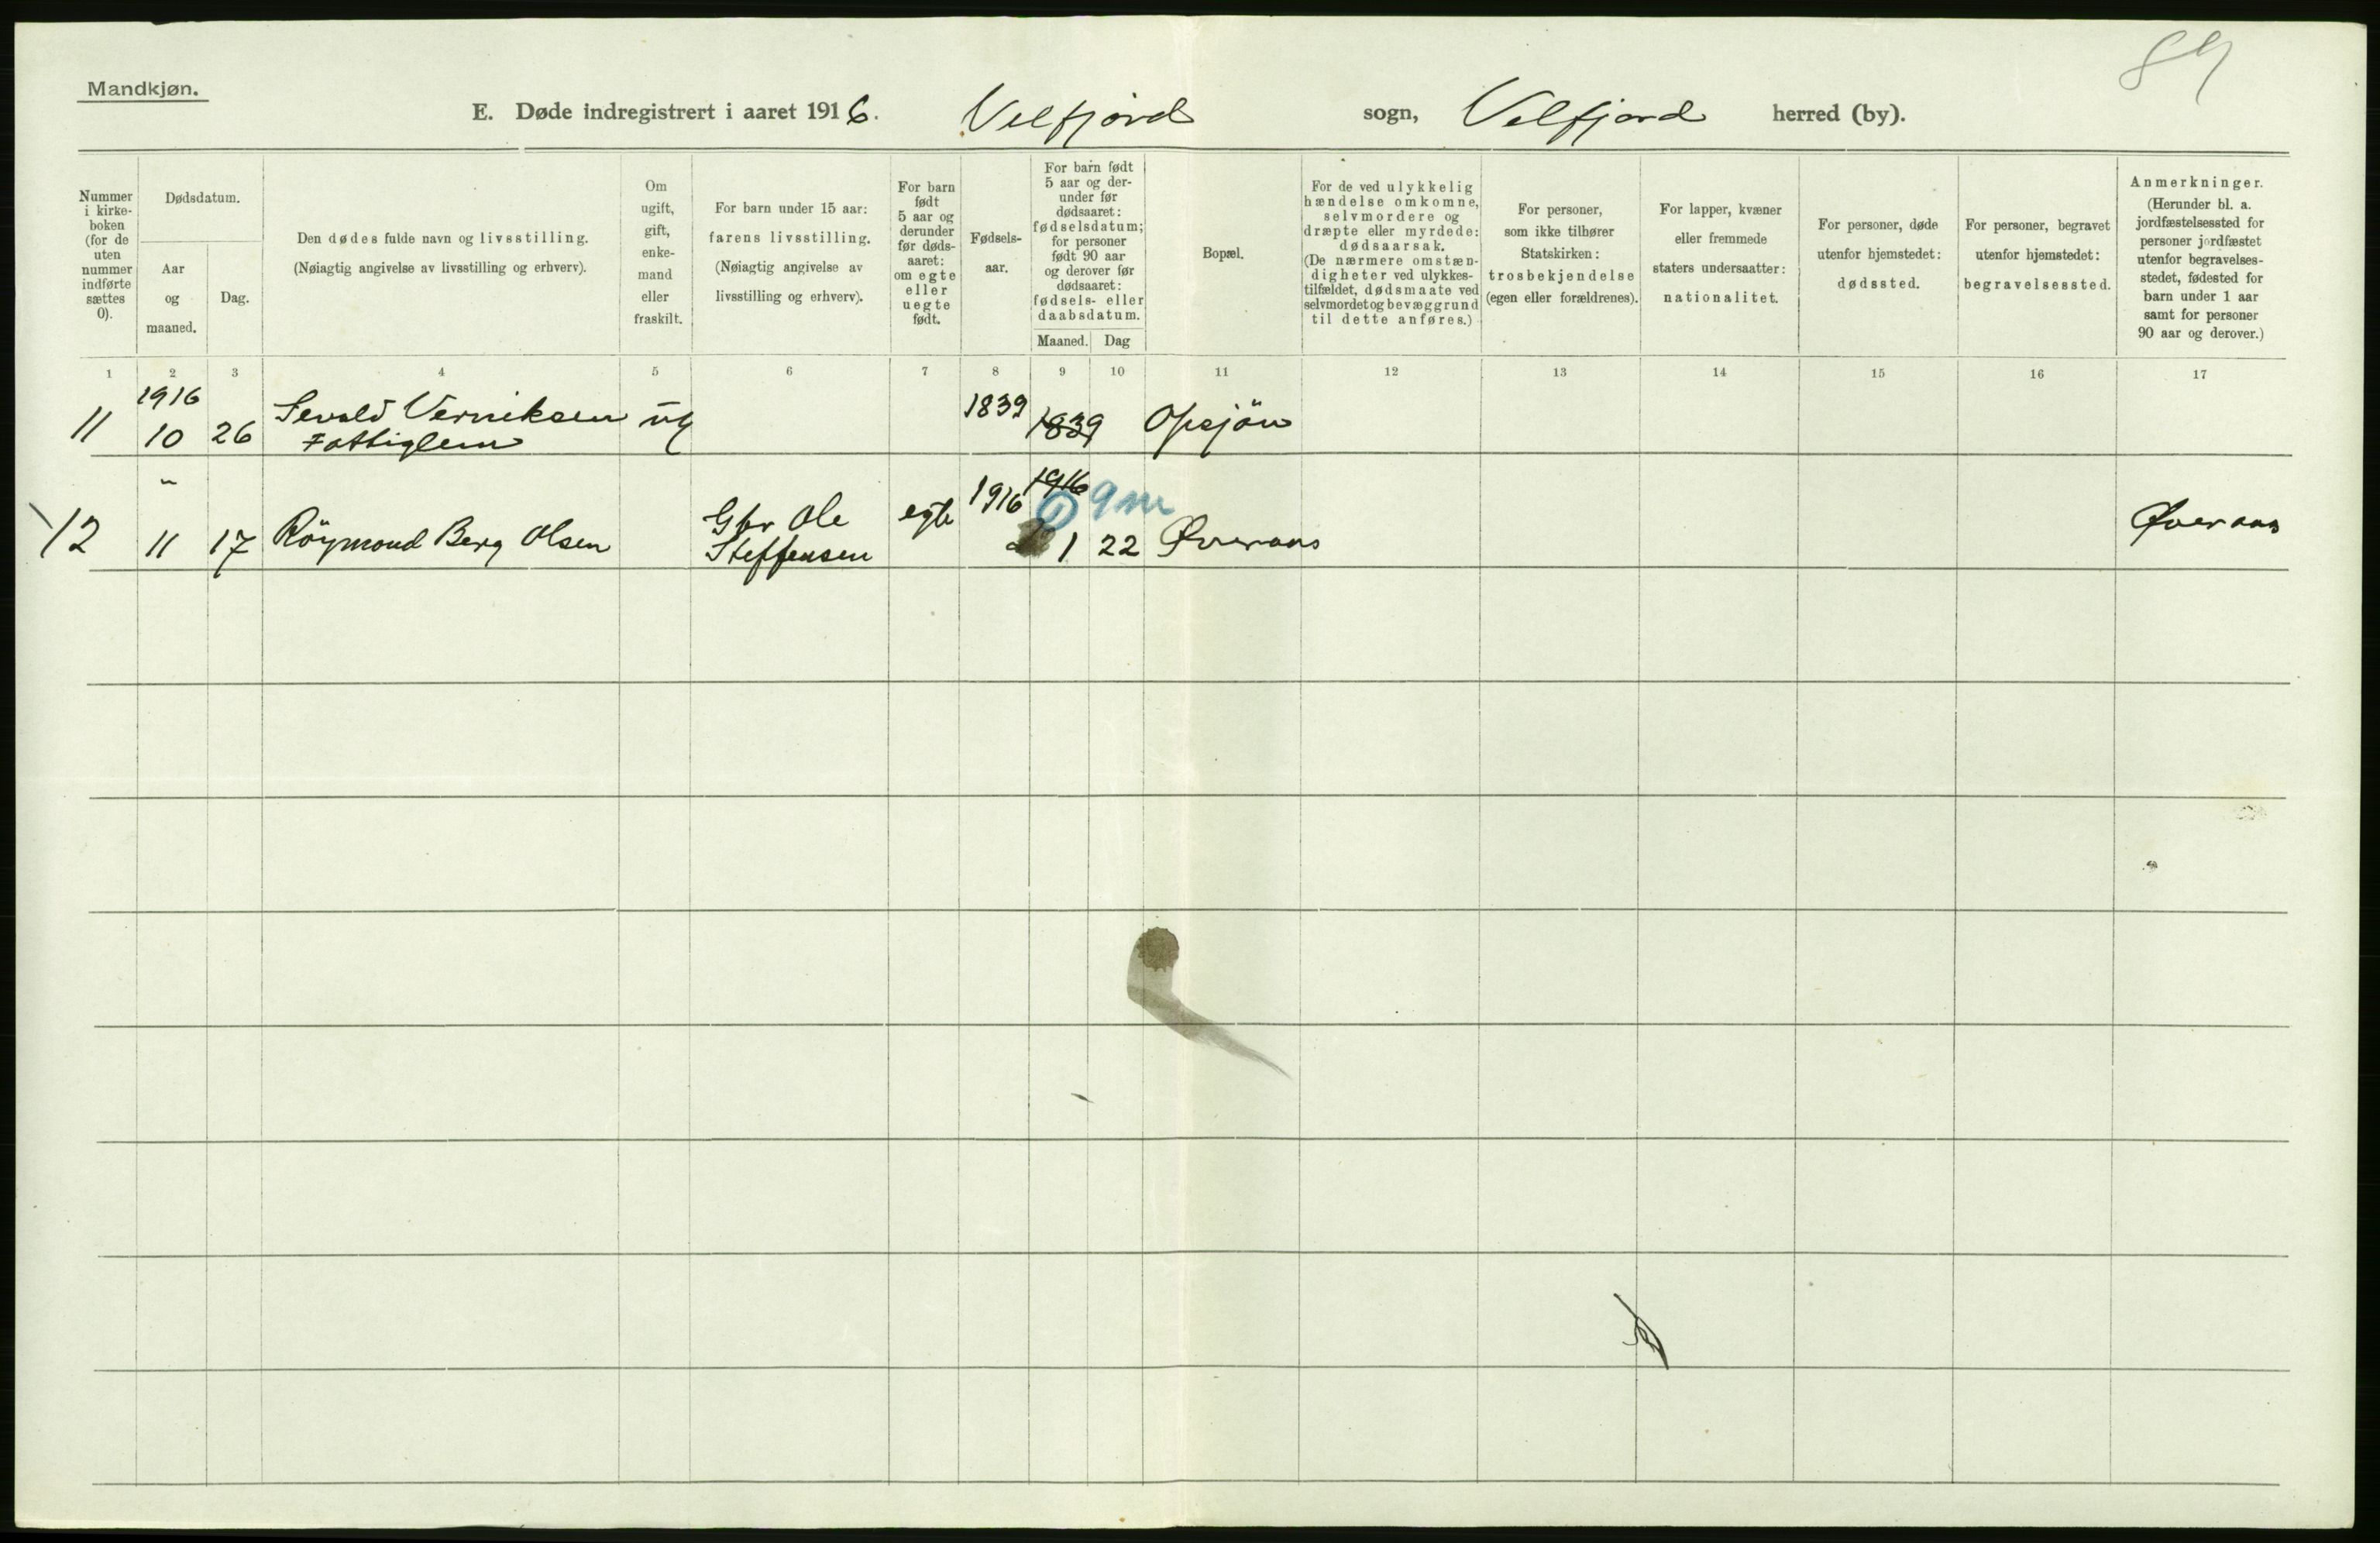 84
Mandkjøn.
E. Døde indregistrert i aaret 1916. Velfjord sogn, Velfjord herred (by).
Nummer
i kirke-
boken
(for de
uten
nummer
indførte
sættes
0).
Dødsdatum.
Aar
og
maaned.
Dag.
Den dødes fulde navn og livsstilling.
(Nøiagtig angivelse av livsstilling og erhverv).
Om
ugift,
gift,
enke-
mand
eller
fraskilt.
For barn under 15 aar:
farens livsstilling.
(Nøiagtig angivelse av
livsstilling og erhverv).
For barn
født
5 aar og
derunder
før døds-
aaret:
om egte
eller
uegte
født.
Fødsels-
aar.
For barn født
5 aar og der-
under før
dødsaaret:
fødselsdatum;
for personer
født 90 aar
og derover før
dødsaaret:
fødsels- eller
daabsdatum.
Maaned. Dag
Bopæl.
For de ved ulykkelig
hændelse omkomne,
selvmordere og
dræpte eller myrdede:
dødsaarsak.
(De nærmere omstæn-
digheter ved ulykkes-
tilfældet, dødsmaate ved
selvmord og bevæggrund
til dette anføres.)
For personer,
som ikke tilhører
Statskirken:
trosbekjendelse
(egen eller forældrenes).
For lapper, kvæner
eller fremmede
staters undersaatter:
nationalitet.
For personer, døde
utenfor hjemstedet:
dødssted.
For personer, begravet
utenfor hjemstedet:
begravelsessted.
Anmerkninger.
(Herunder bl. a.
jordfæstelsessted for
personer jordfæstet
utenfor begravelses-
stedet, fødested for
barn under 1 aar
samt for personer
90 aar og derover.)
1 2 3 4 5 6 7 8 9 10 11 12 13 14 15 16 17
1916 Sevald 1839
11 10 26 Fattiglem ug 1839 Opsjön
" 1916 1916 9 m
Gbr Ole egte
12 11 17 Röymond Berg Olsen Steffensen 1 22 Øveraas Øveraas